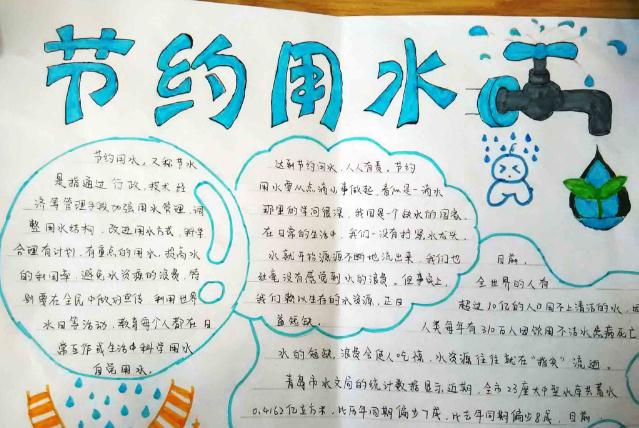 节约用水
节约用水，又称节水
是指通过行政、技术、经
济等管理手段加强用水管理，调
整用水结构，改进用水方式，科学
合理有计划、有重点的用水，提高水
的利用率，避免水资源的浪费。特
别要在全民中做好宣传 利用世界
水日等活动，教育每个人都在日
常工作或生活中科学用水
自觉用水。
达到节约用水，人人有责。节约
用水要从点滴小事做起，看似是一滴水
那里的学问很深。我国是一个缺水的国家。
在日常的生活中，我们一没有拧紧水龙头，
水就开始源源不断地流出来，我们也
丝毫没有感觉到水的浪费。但事实上，
我们赖以生存的水资源，正日
益短缺。
目前，
全世界的人有
超过10亿的人口用不上清洁的水，
人类每年有310万人因饮用不洁水患病死亡
水的短缺，浪费会使人吃惊，水资源往往就在"指尖"流过。
青岛市水文局的统计数据显示近期，全市23座大中型水库共蓄水
0.4162亿立方米，比历年同期偏少7成，比去年同期偏少8成，目前，